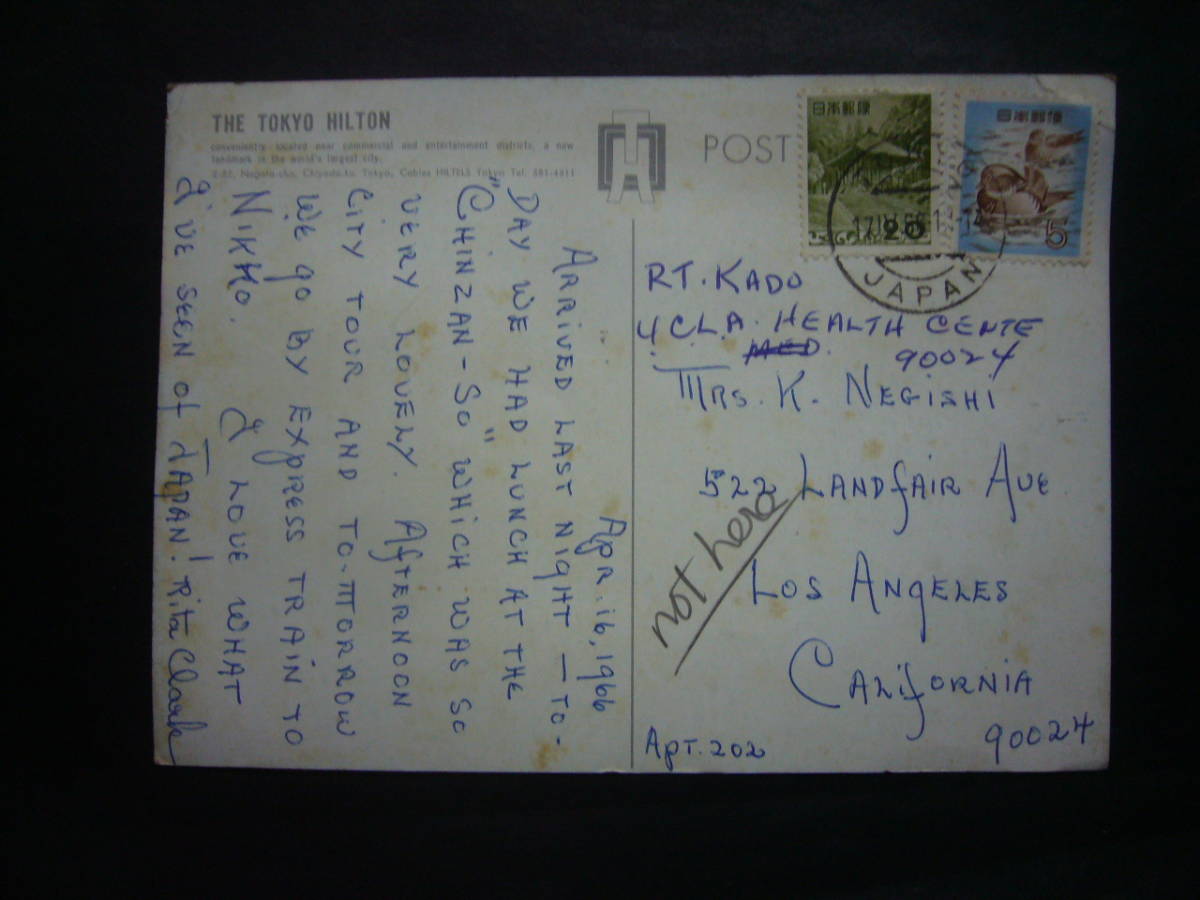 THE TOKYO HILTON
conveniently located near commercial and entertainment districts, a new
landmark in the world's largest city.
Nagata-cho, Chiyoda-ku, Tokyo, Cables HILTELS Tokyo Tel. 581-4511
POST
日本郵便
日本郵便
5
JAPAN
Apr. 16, 1966
ARRIVED LAST NIGHT — TO-
DAY WE HAD LUNCH AT THE
"CHINZAN-SO" WHICH WAS SO
VERY LOVELY. AFTERNOON
CITY TOUR AND TO-MORROW
WE GO BY EXPRESS TRAIN TO
NIKKO. I LOVE WHAT
I'VE SEEN of JAPAN! Rita Clark
RT. KADO
U.C.L.A. HEALTH CENTE
MED. 90024
MRS. K. NEGISHI
522 LANDFAIR AVE
not here
LOS ANGELES
CALIFORNIA
APT. 202 90024